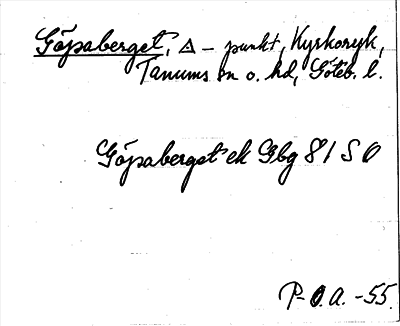 Göpsaberget, △ – punkt, Kyrkoryk,
Tanums sn o. hd, Göteb. l.
Göpsaberget ek Gbg 81 S O
P-O.A. -55.